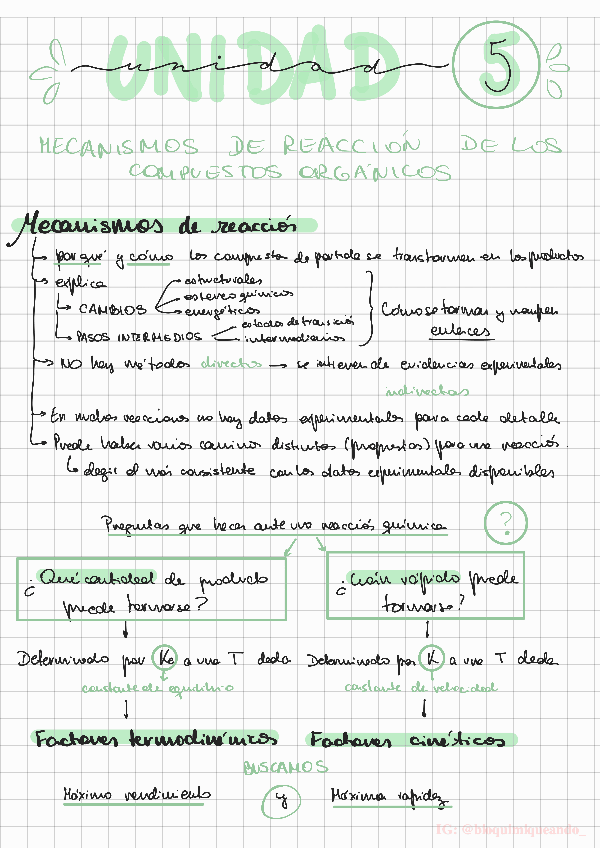 UNIDAD
unidad 5
MECANISMOS DE REACCIÓN DE LOS
COMPUESTOS ORGÁNICOS
Mecanismos de reacción
→ por qué y cómo los compuestos de partida se transforman en los productos
→ explica
→ CAMBIOS
estructurales
estereoquímicos
energéticos
→ PASOS INTERMEDIOS
estados de transición
intermediarios
Cómo se forman y rompen
enlaces
→ NO hay métodos directos → se infieren de evidencias experimentales
indirectas
→ En muchas reacciones no hay datos experimentales para cada detalle
→ Puede haber varios caminos distintos (propuestas) para una reacción.
↳ elegir el más consistente con los datos experimentales disponibles
Preguntas que hacer ante una reacción química
?
¿Qué cantidad de producto
puede formarse?
¿Cuán rápido puede
formarse?
Determinado por Ke a una T dada
Determinado por K a una T dada
constante de equilibrio
constante de velocidad
Factores termodinámicos
Factores cinéticos
BUSCAMOS
Máximo rendimiento y Máxima rapidez
IG: @bioquimiqueando_